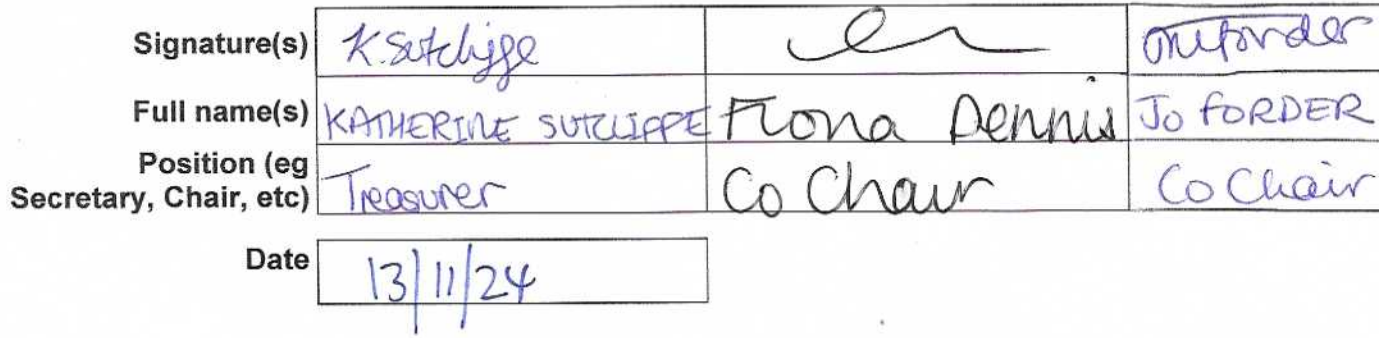 Signature(s) K. Sutcliffe
Full name(s) KATHERINE SUTCLIFFE Fiona Dennis Jo FORDER
Position (eg
Secretary, Chair, etc) Treasurer Co Chair Co Chair
Date 13/11/24